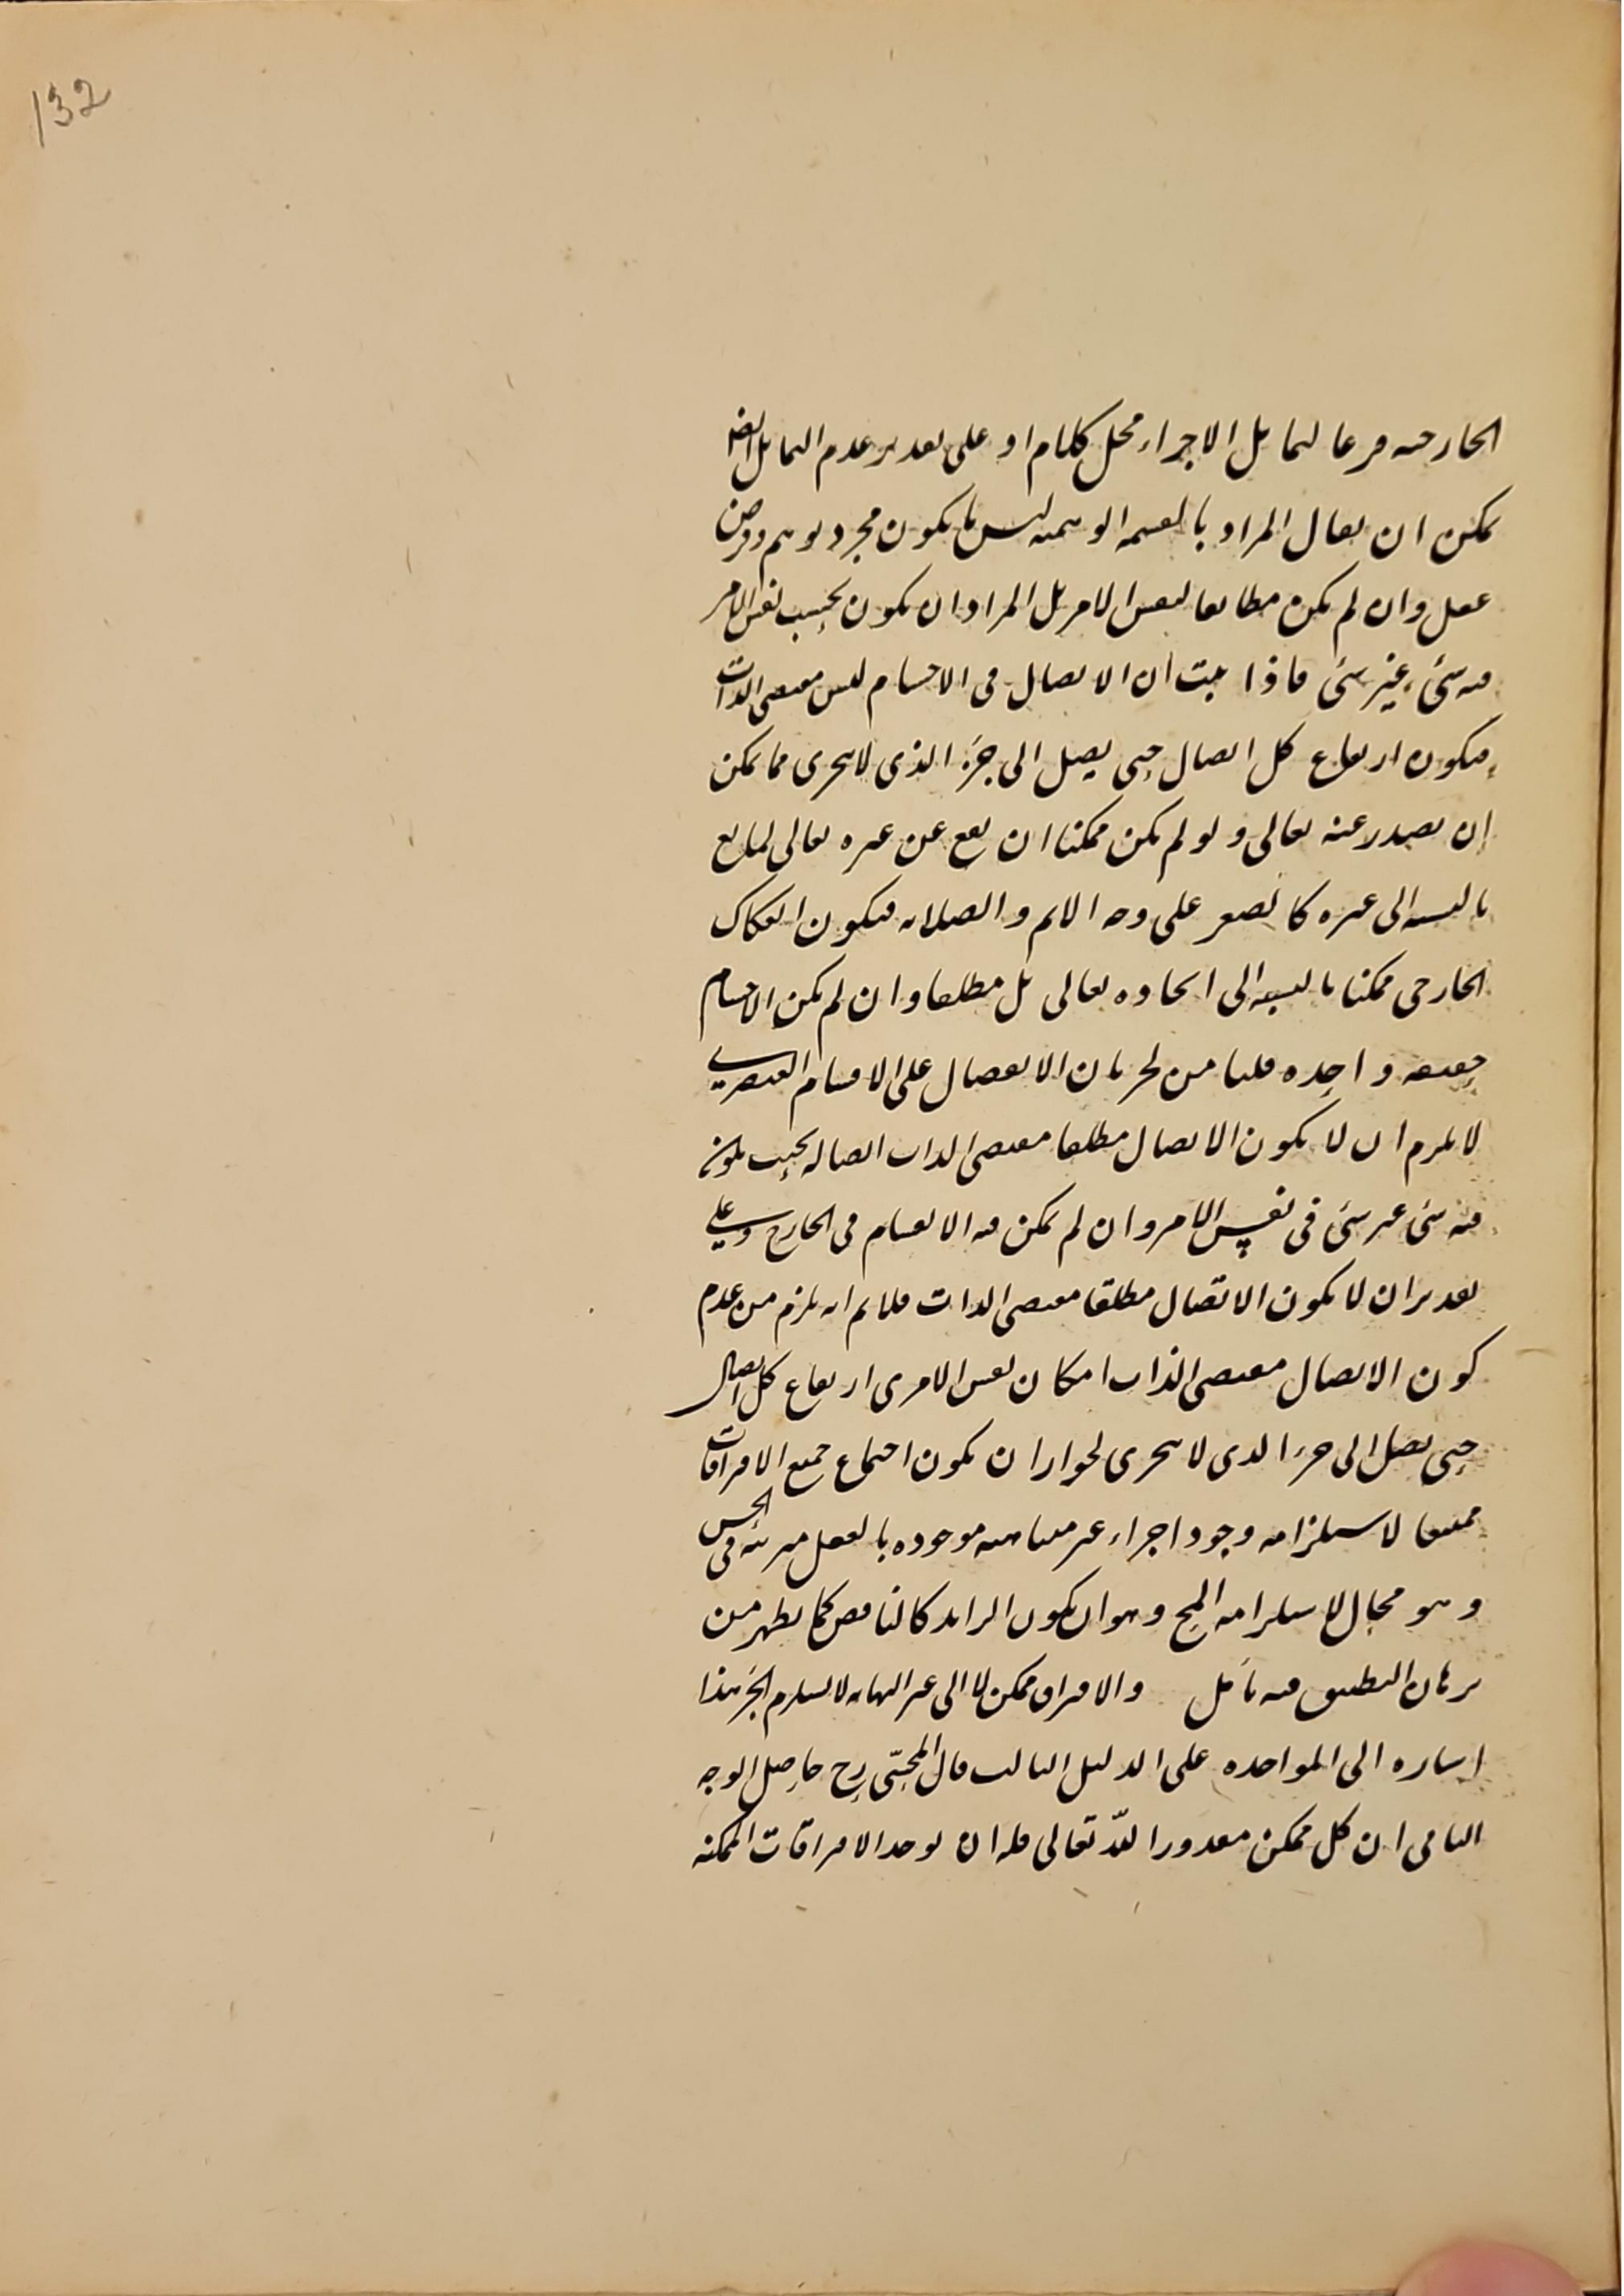 132
الخارجية فرعا لتماثل الاجزاء محل كلام او على تقدير عدم التماثل ايضا
يمكن ان يقال المراد بالقسمة الوهمية ليس ما يكون مجرد توهم وفرض
عقل وان لم يكن مطابقا لنفس الامر بل المراد ان يكون بحسب نفس الامر
فيه شئ غير شئ فاذا ثبت ان الاتصال فى الاجسام ليس مقتضى الذات
فيكون ارتفاع كل اتصال حتى يصل الى جزء الذى لا يتجزى مما يمكن
ان يصدر عنه تعالى ولو لم يكن ممكنا ان يقع عن غيره تعالى لمانع
بالنسبة الى غيره كالصغر على وجه الاتم والصلابه فيكون انفكاك
الخارجى ممكنا بالنسبة الى ايجاده تعالى بل مطلقا وان لم يكن الاجسام
حقيقة واحده قلنا من جريان الانفصال على الاقسام العنصرية
لا يلزم ان لا يكون الاتصال مطلقا مقتضى الذات اتصاله بحيث يكون
فيه شئ غير شئ فى نفس الامر وان لم يكن فيه الانقسام فى الخارج وعلى
تقدير ان لا يكون الاتصال مطلقا مقتضى الذات فلا نم انه يلزم من عدم
كون الاتصال مقتضى الذات امكان نفس الامرى ارتفاع كل اتصال
حتى يصل الى جزء الذى لا يتجزى لجواز ان يكون اجتماع جميع الافتراقات
ممتنعا لاستلزامه وجود اجزاء غير متناهيه موجوده بالفعل مترتبة فى الحس
وهو محال لاستلزامه المح وهو ان يكون الزايد كالناقص كما يظهر من
برهان التطبيق فيه تأمل والافتراق ممكن لا الى غير النهايه لا يستلزم الجزء هذا
اشاره الى المواخذه على الدليل الثالث قال المحشى رح حاصل الوجه
الثانى ان كل ممكن مقدورا لله تعالى فله ان يوجد الافتراقات الممكنه